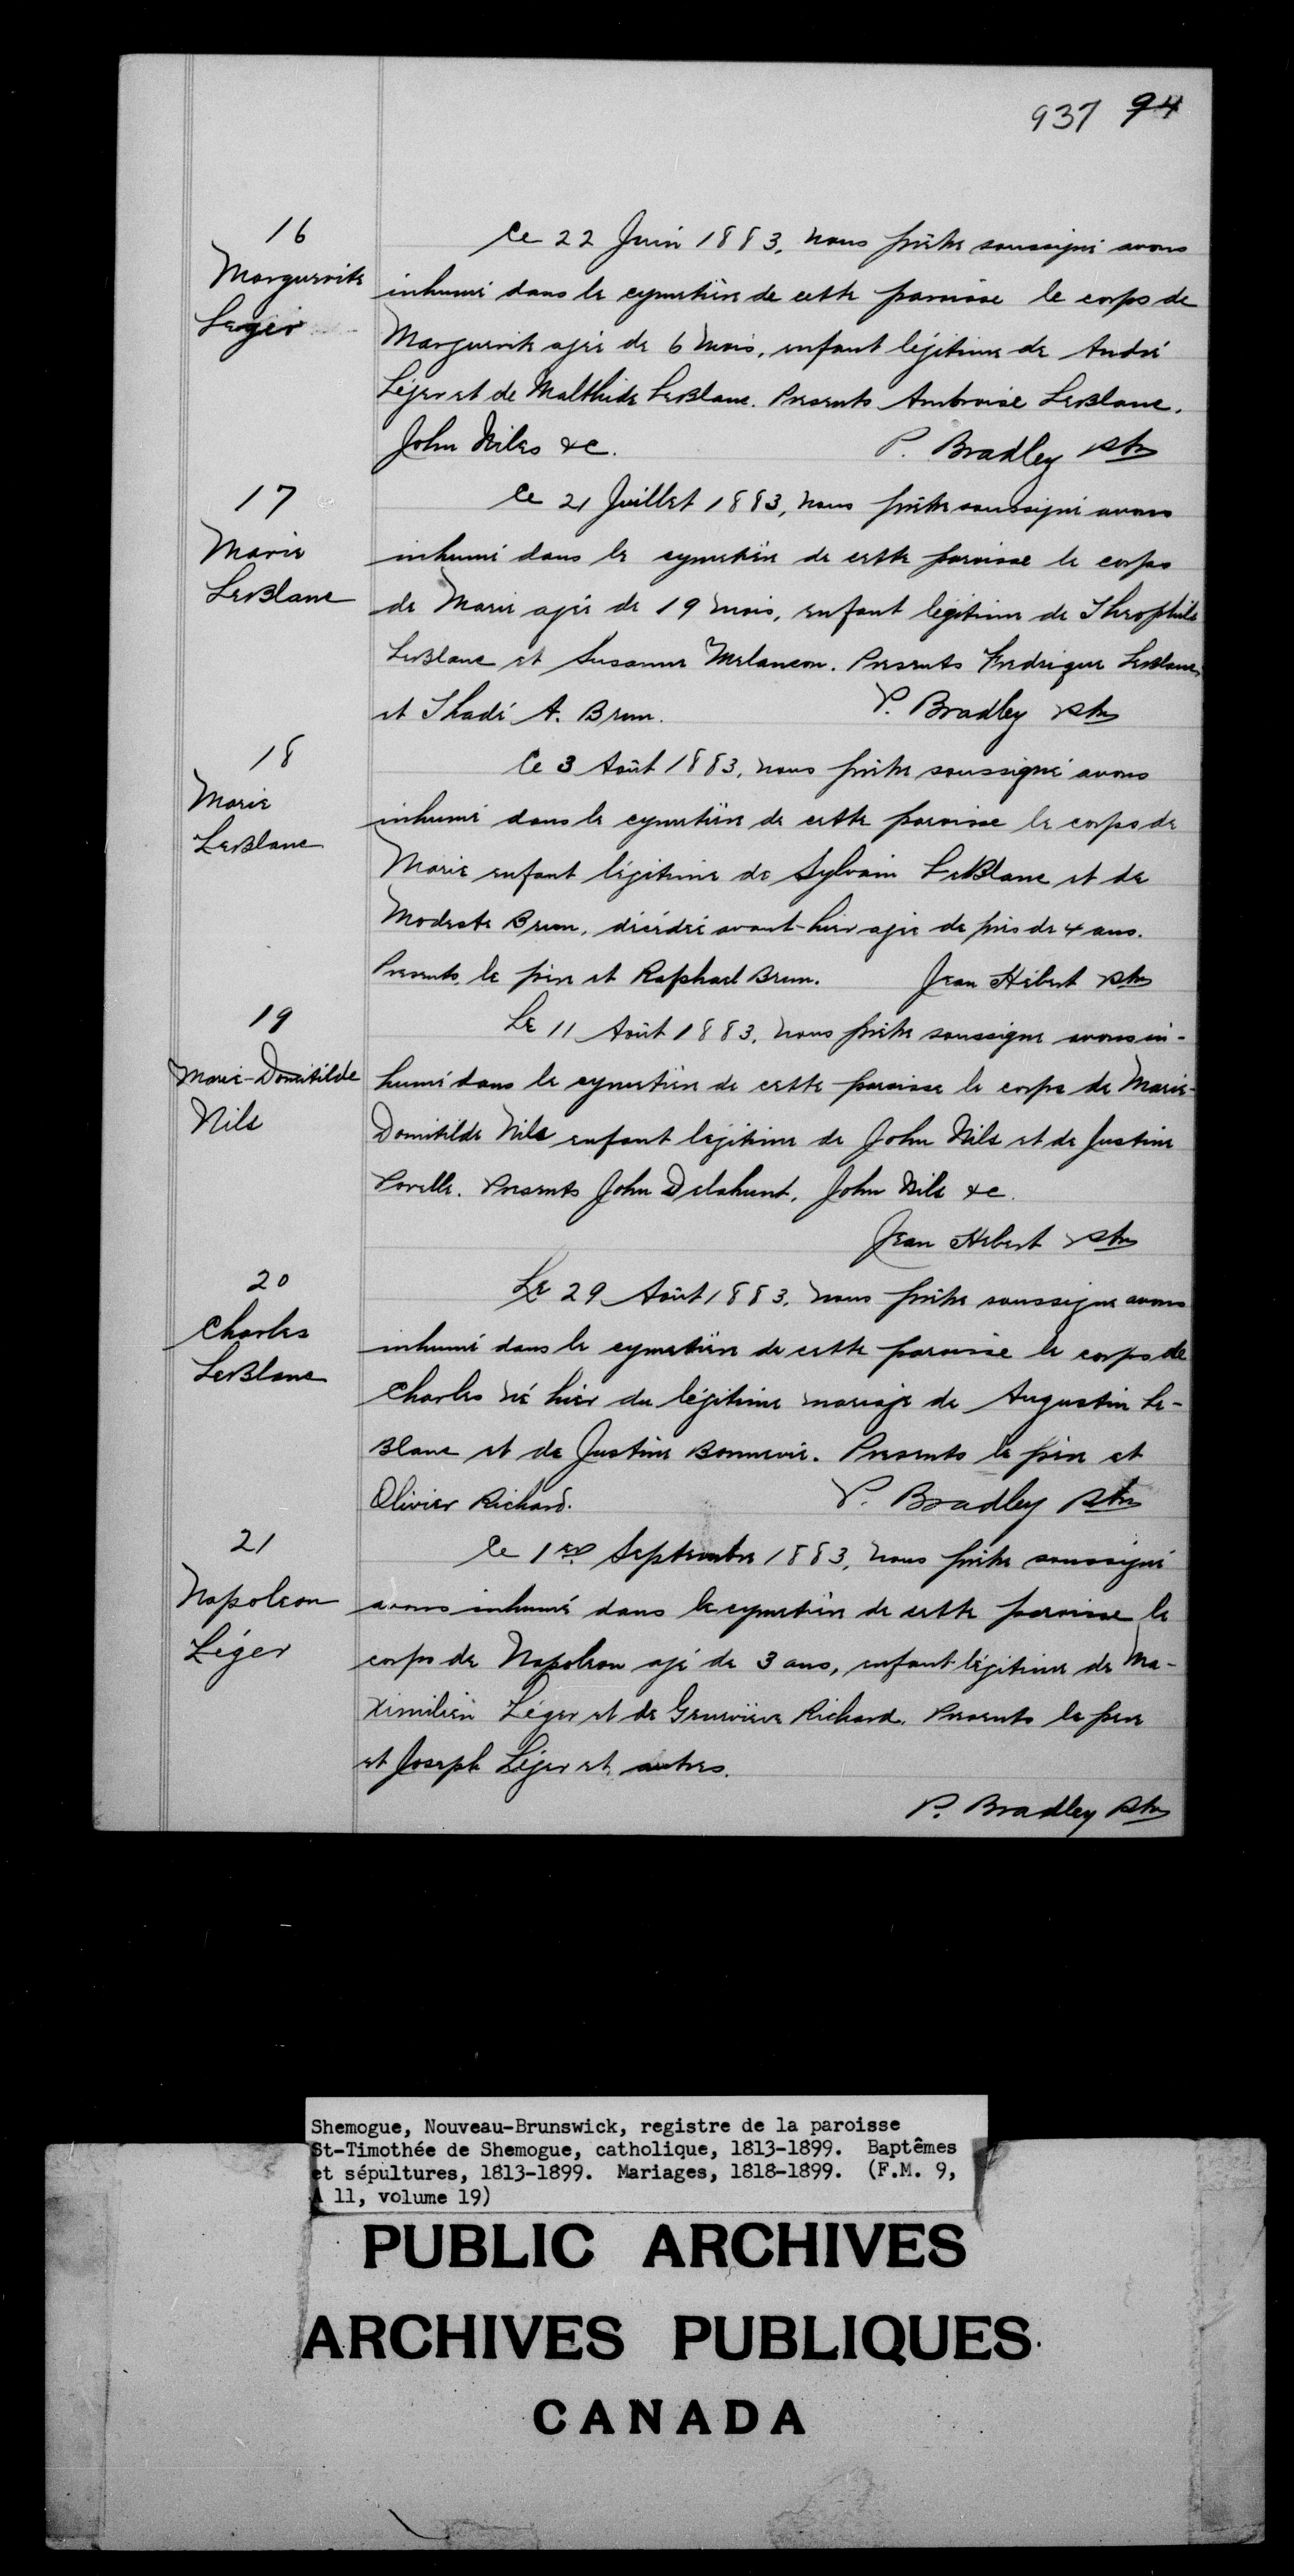 937 94
16
Marguerite
Leger
Ce 22 Juin 1883, nous prêtre soussigné avons
inhumé dans le cymetière de cette paroisse le corps de
Marguerite agée de 6 mois, enfant légitime de André
Léger et de Malthide LeBlanc. Presents Ambroise LeBlanc,
John Niles &c. P. Bradley Ptre
17
Marie
LeBlanc
Ce 21 Juillet 1883, nous prêtre soussigné avons
inhumé dans le cymetière de cette paroisse le corps
de Marie agée de 19 mois, enfant légitime de Theophile
LeBlanc et Susanne Melancon. Presents Fredrique LeBlanc
et Thadé A. Brun. P. Bradley Ptre
18
Marie
LeBlanc
Ce 3 Août 1883, nous prêtre soussigné avons
inhumé dans le cymetière de cette paroisse le corps de
Marie enfant légitime de Sylvain LeBlanc et de
Modeste Brun, décédée avant-hier agée de près de 4 ans.
Presents, le père et Raphael Brun. Jean Hébert Ptre
19
Marie-Domitilde
Nile
Le 11 Août 1883, nous prêtre soussigne avons in-
humé dans le cymetière de cette paroisse le corps de Marie-
Domitilde Nile enfant légitime de John Nile et de Justine
Porelle. Presents John Delahunt, John Nile &c.
Jean Hebert Ptre
20
Charles
LeBlanc
Le 29 Août 1883, nous prêtre soussigne avons
inhumé dans le cymetière de cette paroisse le corps de
Charles né hier du légitime mariage de Augustin Le-
Blanc et de Justine Bonnevie. Presents le père et
Olivier Richard. P. Bradley Ptre
21
Napoleon
Léger
Ce 1er Septembre 1883, nous prêtre soussigné
avons inhumé dans le cymetière de cette paroisse le
corps de Napoleon agé de 3 ans, enfant légitime de Ma-
ximilien Léger et de Geneviève Richard. Presents le pere
et Joseph Léger et autres.
P. Bradley Ptre
Shemogue, Nouveau-Brunswick, registre de la paroisse
St-Timothée de Shemogue, catholique, 1813-1899. Baptêmes
et sépultures, 1813-1899. Mariages, 1818-1899. (F.M. 9,
A 11, volume 19)
PUBLIC ARCHIVES
ARCHIVES PUBLIQUES
CANADA